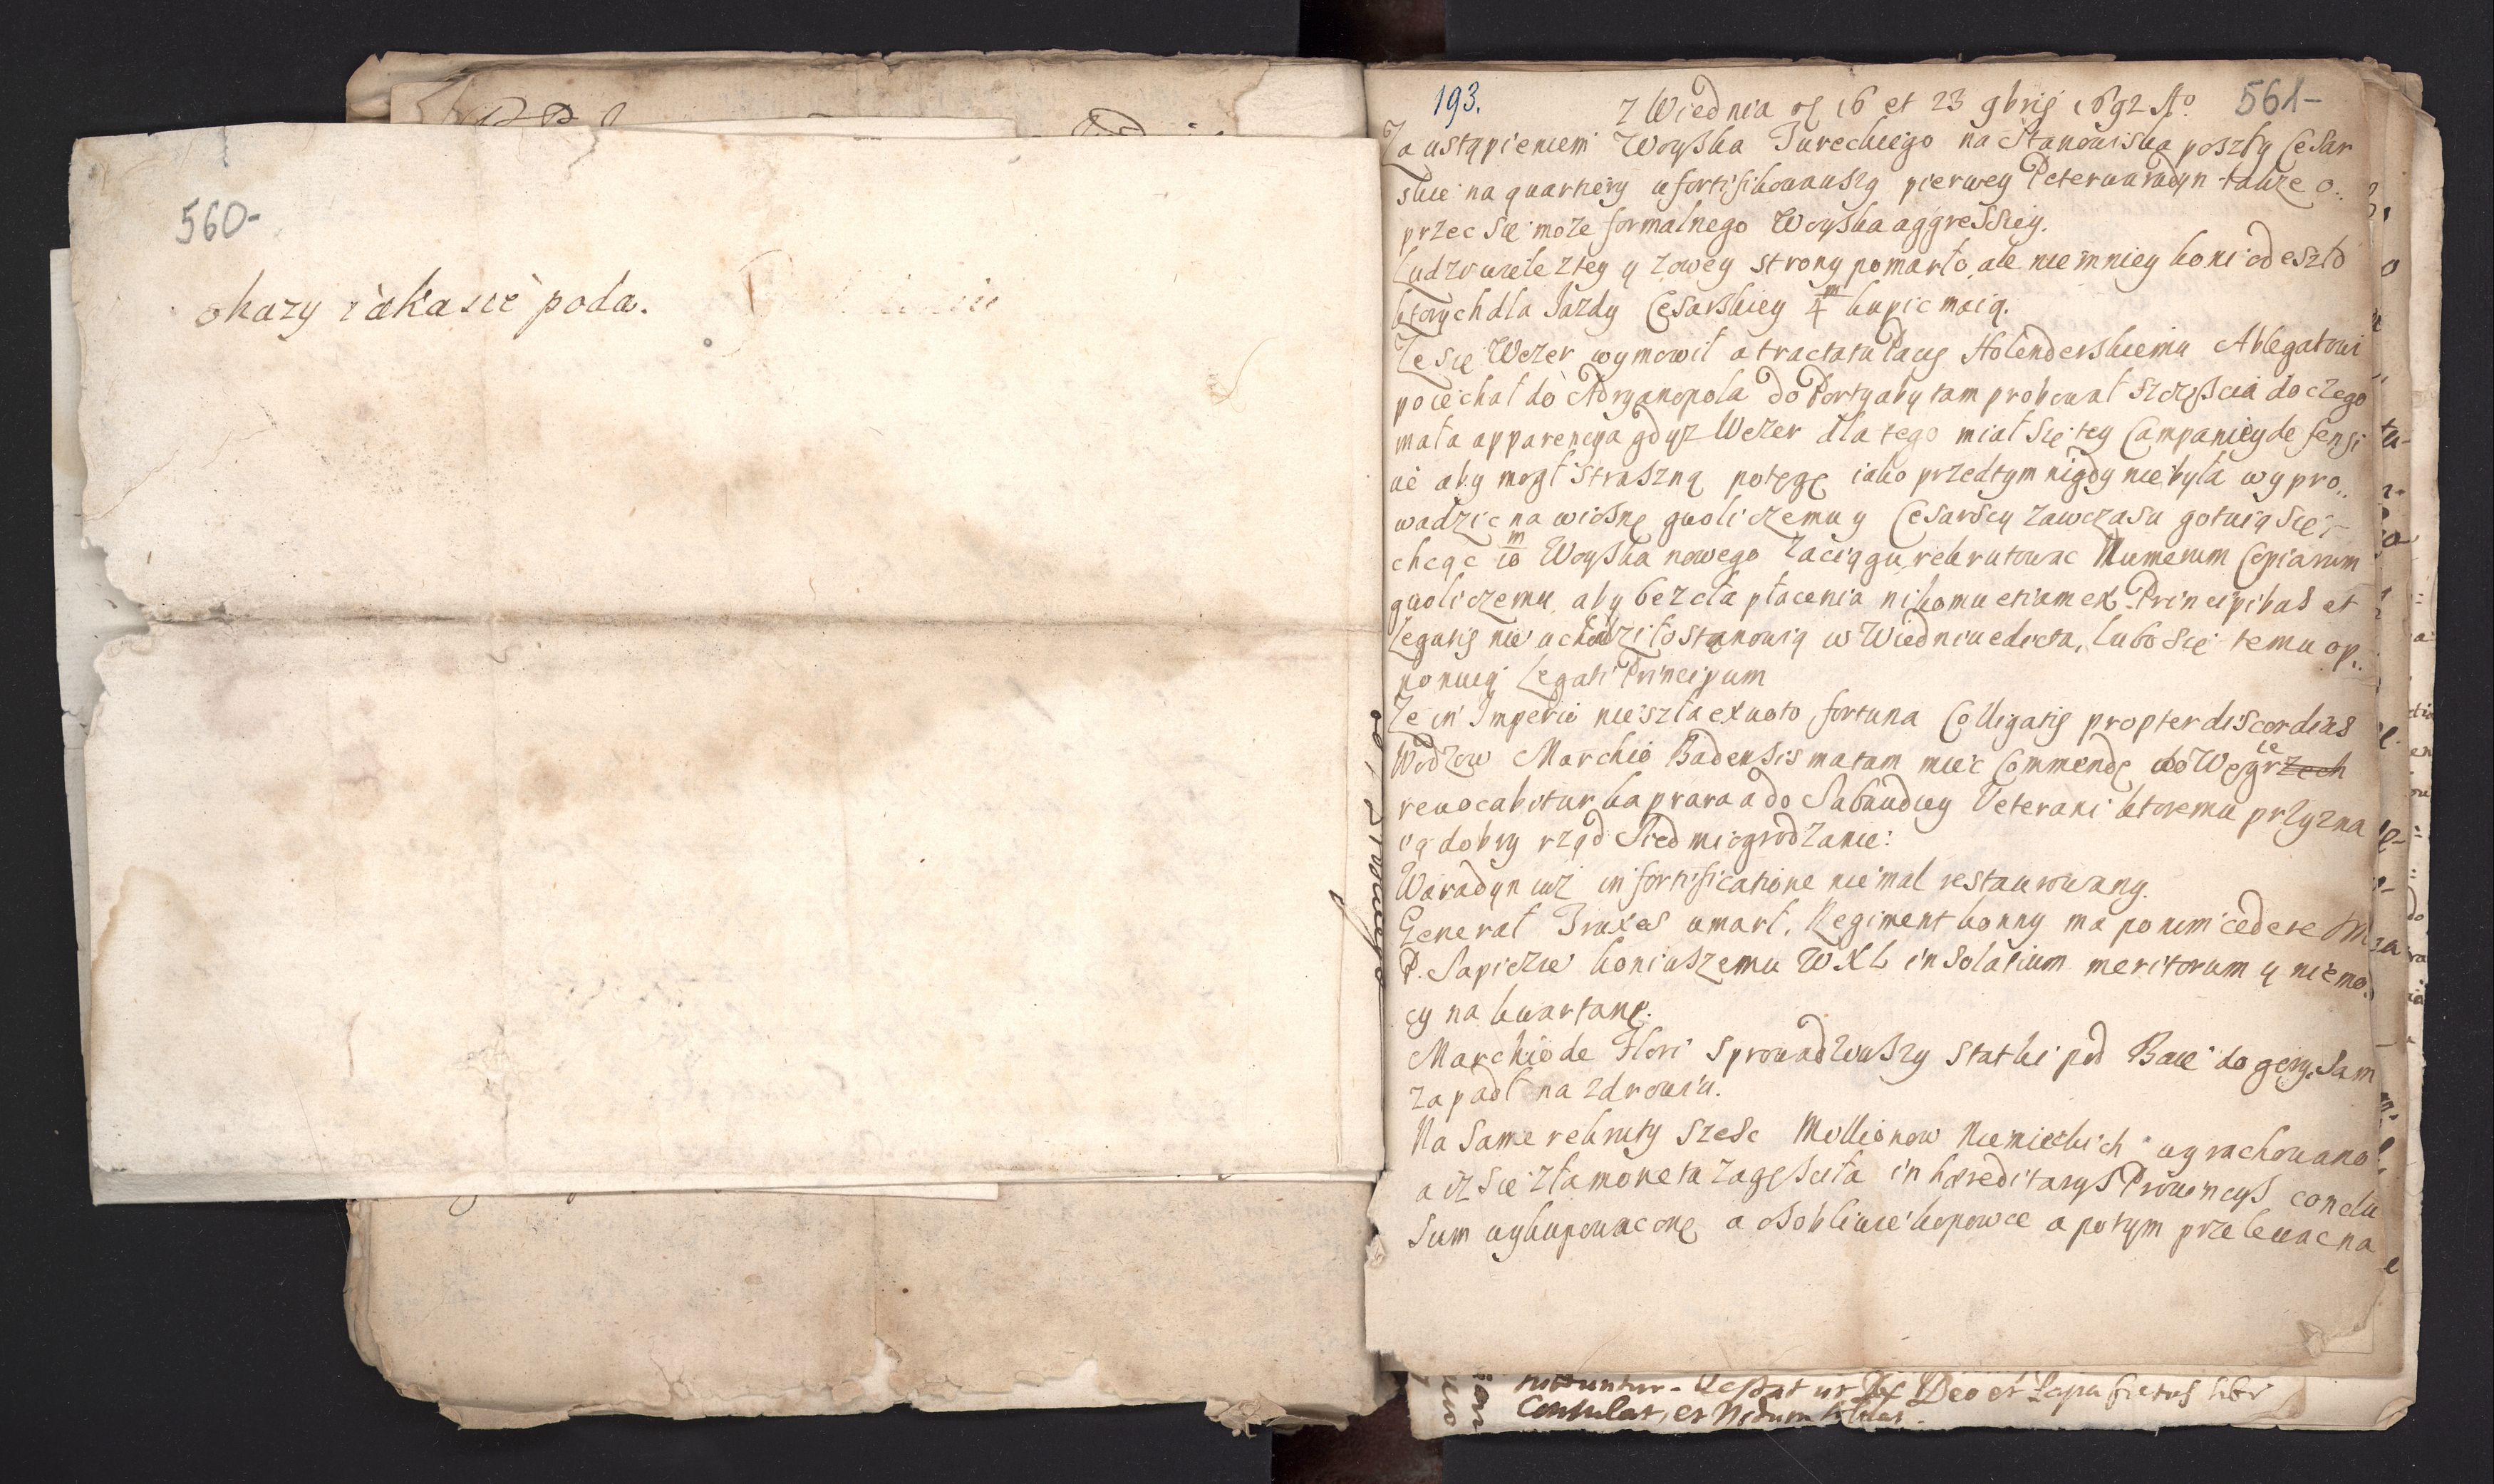 560-
okazy iaka sie poda.
193.
561-
z Wiednia 16 et 23 9bris 1692 Ao.
Za ustąpieniem Woyska Tureckiego na Stanowiska poszły Cesar
skie na quartiery ufortifikowawszy pierwey Peterwaradyn takze o..
przec się moze formalnego Woyska aggressiey.
Ludzi wiele z tey y z owey strony pomarło, ale nie mniey koni odeszło
ktorych dla Jazdy Cesarskiey 4m kupic maią.
Ze się Wezer wymowił a tractatu Pacis Holenderskiemu Ablegatowi
poiechał do Adryanopola do Porty aby tam probował szczęscia do czego
mała apparencya gdyz Wezer dla tego miał się tey Campaniey defensi
ue aby mogł straszną potęgę iako przedtym nigdy nie była wypro..
wadzic na wiosnę gwoli czemu y Cesarscy zawczasu gotuią się
chcąc 10m Woyska nowego zaciągu rekrutowac Numerum Copiarum
gwoli czemu aby bez cła płacenia nikomu etiam ex Principibus et
Legatis nie uchodziło stanowią w Wiedniu edicta, lubo się temu op..
ponuią Legati Principum
Ze in Imperio nie szła ex uoto fortuna Colligatis propter discordias
Wodzow Marchio Badensis ma tam miec Commendę do Węgier
reuocabitur Kaprara a do Sabaudiey Veterani ktoremu przyzna
ią dobry rząd Siedmiogrodzanie:
Waradyn iuz in fortificatione niemal restaurowany.
Generał Truxes umarł, Regiment konny ma po nim cedere
P. Sapiezie koniuszemu WXL in Solatium meritorum y niemo..
cy na kwartanę.
Marchio de Flori sprowadziwszy statki pod Baie do gory, sam
zapadł na zdrowiu.
Na same rekruty szesc Millionow Niemieckich wyrachowano
a iz się zła moneta zagęsciła in hæreditarys Prouincys conclu
sum wykupowac onę a osobliwie kopowce a potym przelewac na